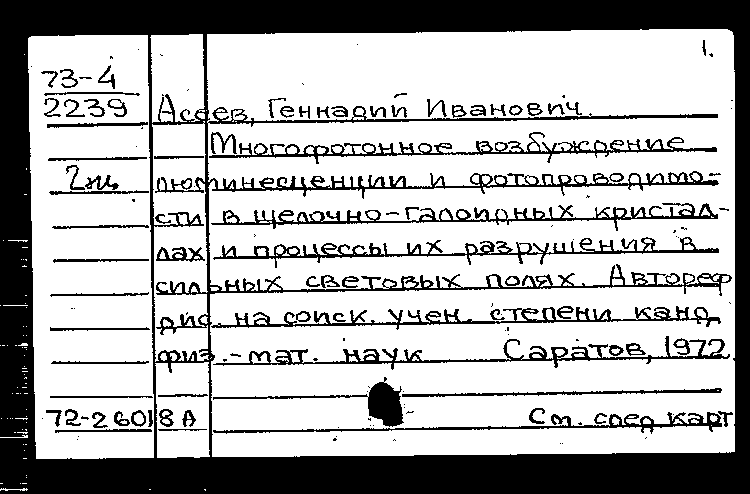 1.
73-4
2239 Асеев, Геннадий Иванович.
Многофотонное возбуждение
люминесценции и фотопроводимо-
сти в щелочно-галоидных кристал-
лах и процессы их разрушения в
сильных световых полях. Автореф
дис. на соиск. учен. степени канд.
физ.-мат. наук Саратов, 1972.
72-26018А См. след карт